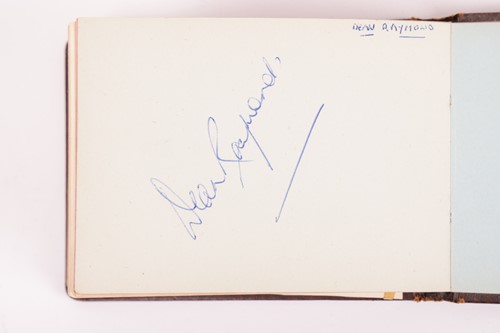 DEAN RAYMOND
Dean Raymond